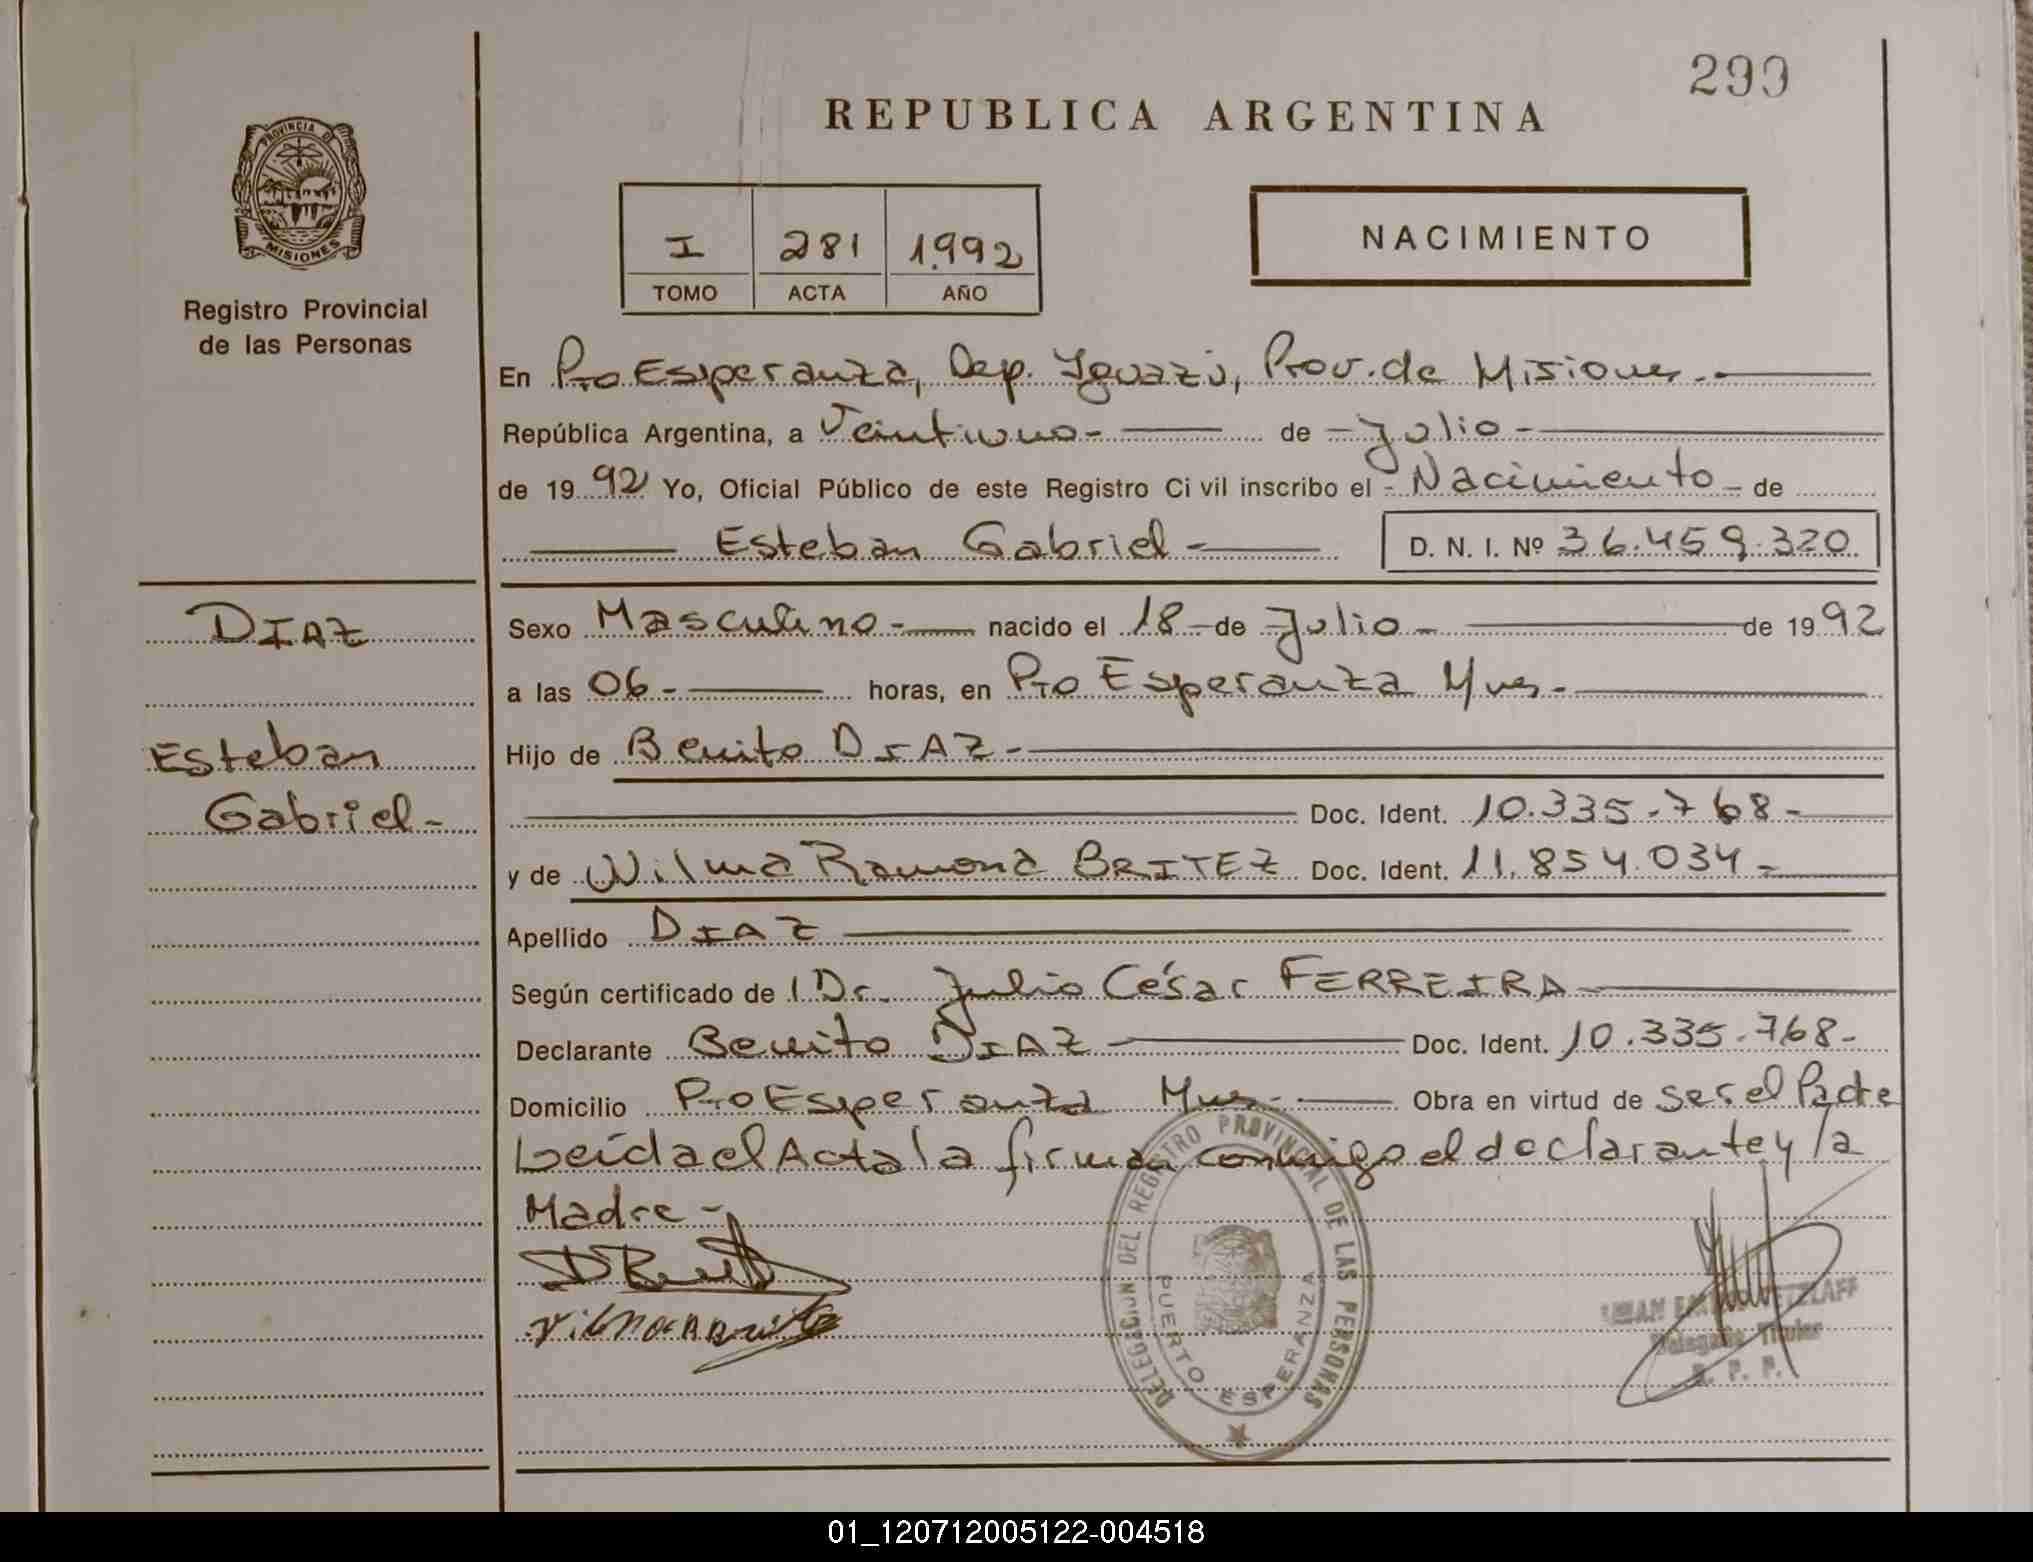 299
REPUBLICA ARGENTINA
PROVINCIA DE
MISIONES
Registro Provincial
de las Personas
I 281 1.992
TOMO ACTA AÑO
NACIMIENTO
En Pto Esperanza, Dep. Iguazú, Prov. de Misiones.-
República Argentina, a Veintiuno- de -Julio-
de 19 92 Yo, Oficial Público de este Registro Civil inscribo el - Nacimiento - de
Esteban Gabriel -
D. N. I. Nº 36.459.320
DIAZ
Esteban
Gabriel-
Sexo Masculino- nacido el 18 - de Julio - de 19 92
a las 06 - horas, en Pto Esperanza Mnes-
Hijo de Benito DIAZ-
Doc. Ident. 10.335.768-
y de Wilma Ramona BRITEZ Doc. Ident. 11.854.034-
Apellido DIAZ
Según certificado de l Dr. Julio César FERREIRA
Declarante Benito DIAZ Doc. Ident. 10.335.768-
Domicilio Pto Esperanza Mnes- Obra en virtud de ser el Padre
Leída el Acta la firman conmigo el declarante y la
Madre-
DELEGACION DEL REGISTRO PROVINCIAL DE LAS PERSONAS
PUERTO ESPERANZA
Delegado Titular
R. P. P.
01_120712005122-004518